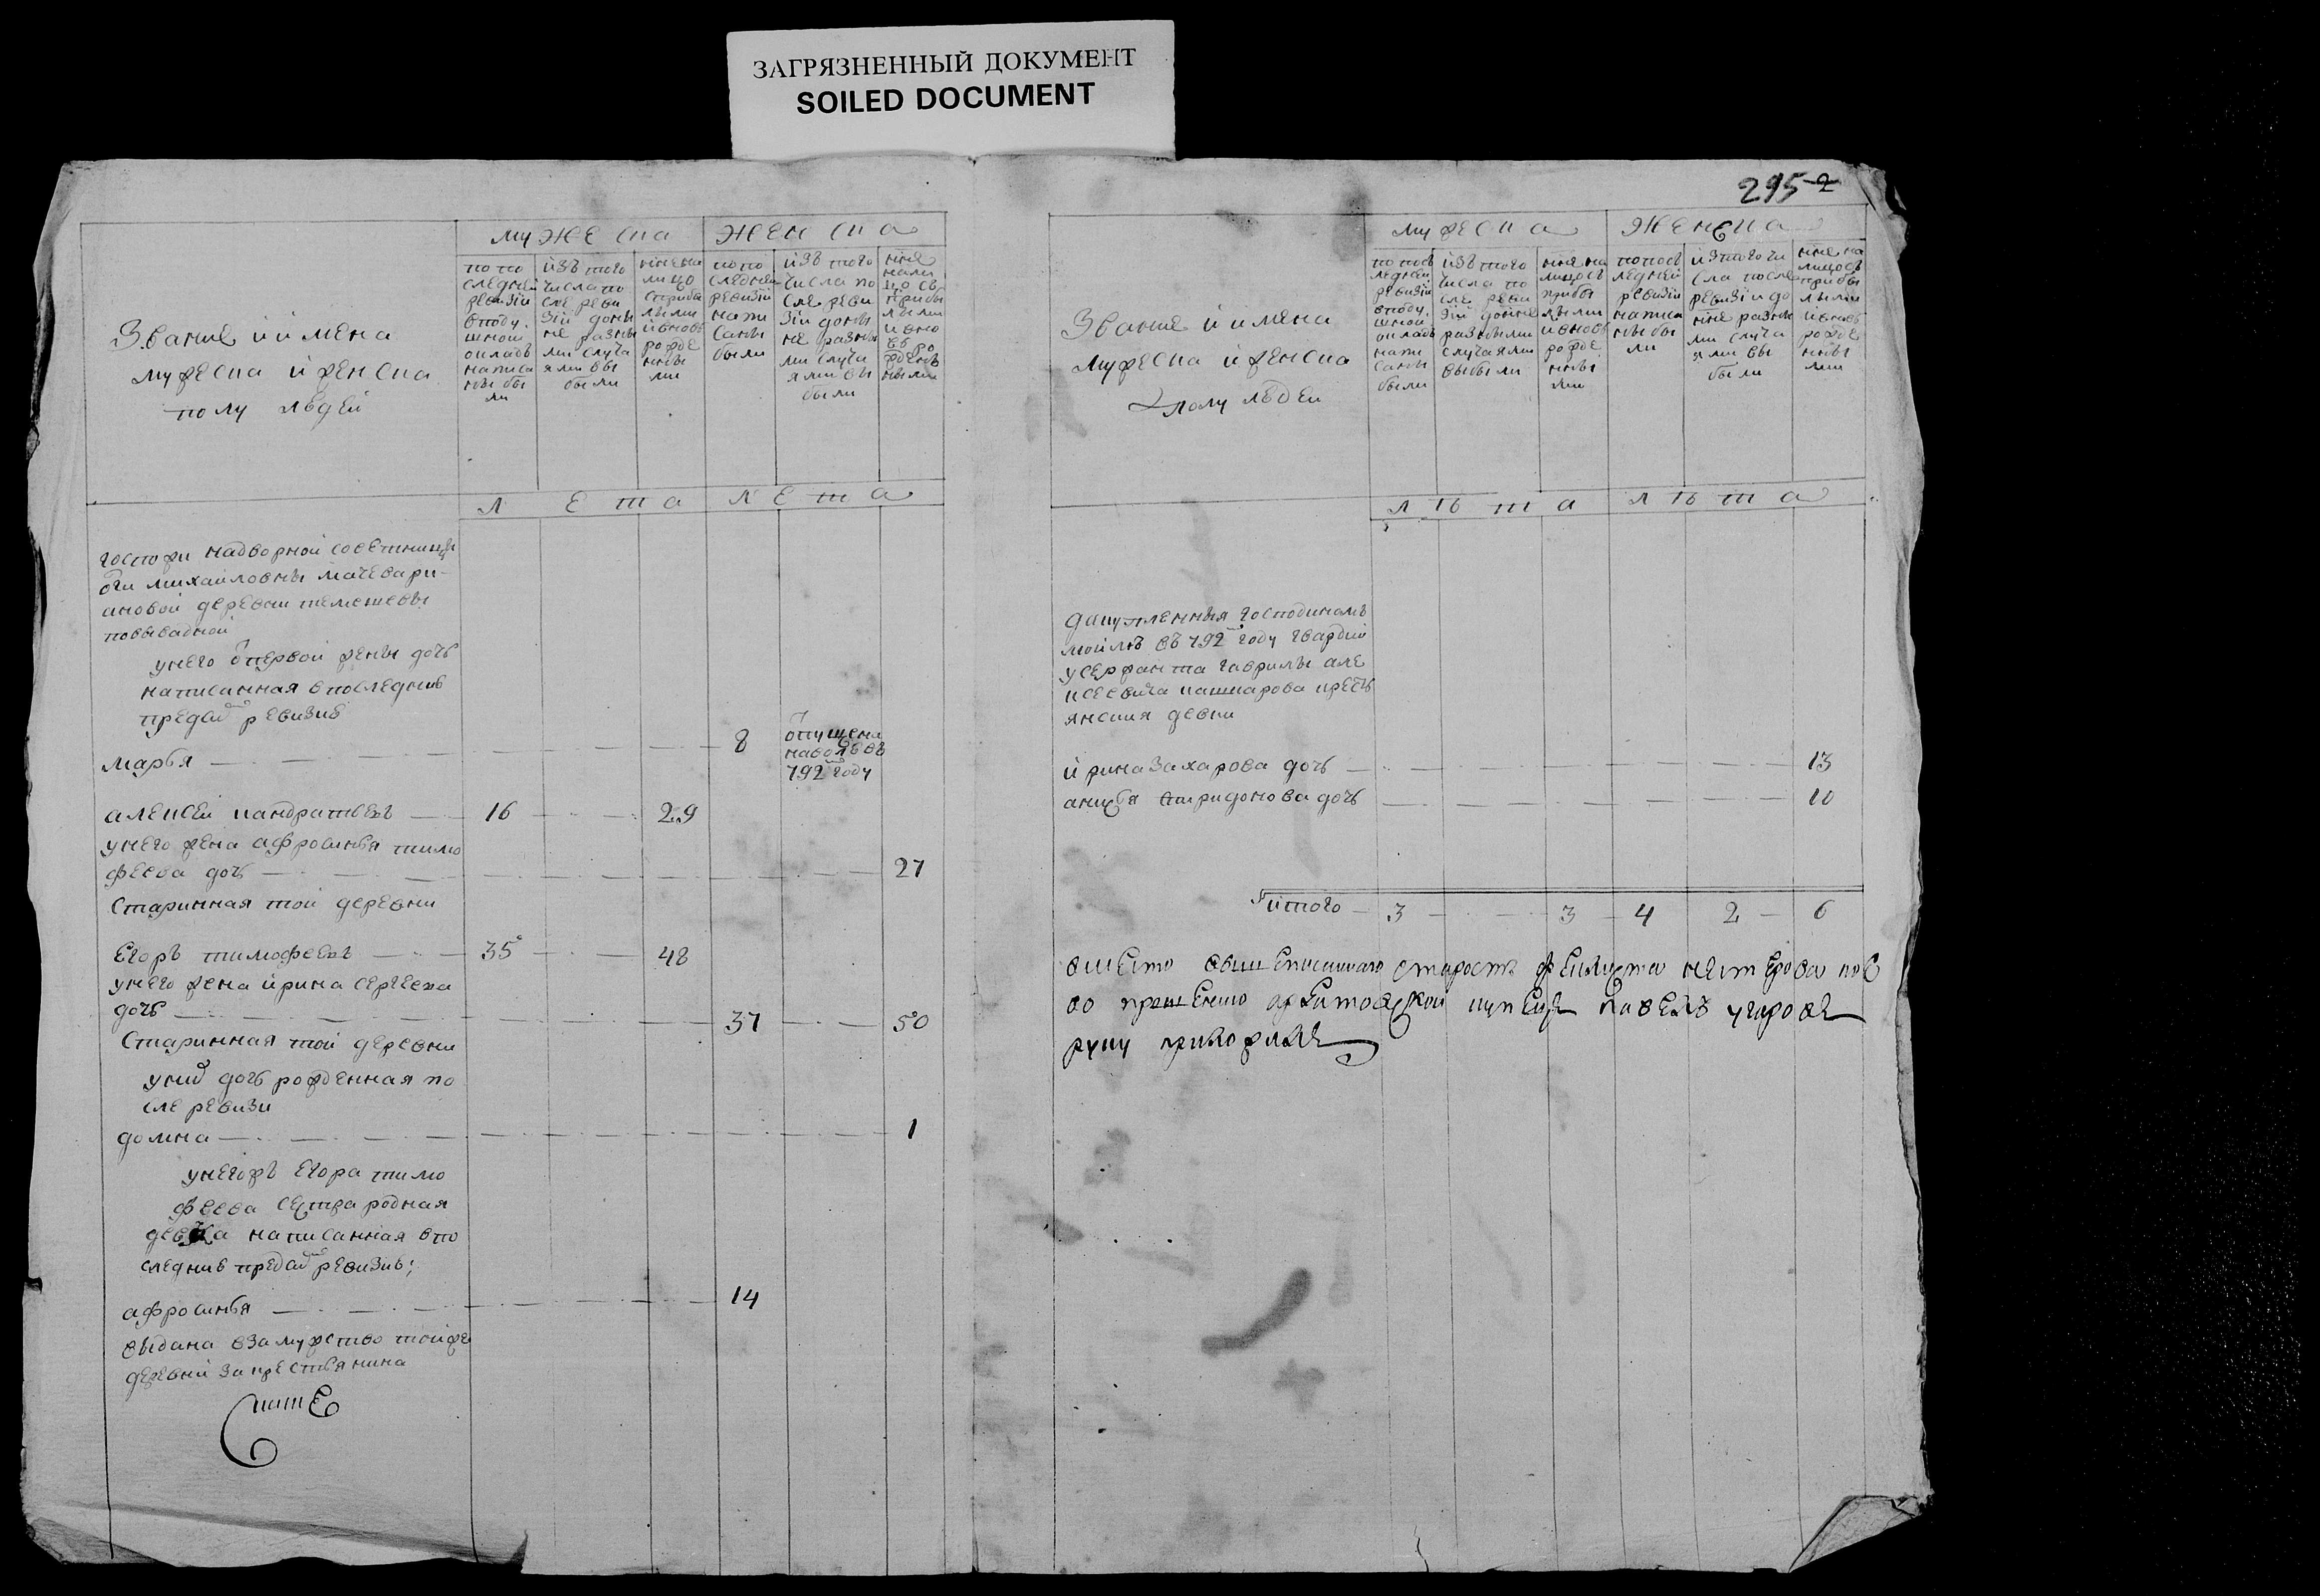 ЗАГРЯЗНЕННЫЙ ДОКУМЕНТ
SOILED DOCUMENT
295 2
Звание и имена
мужеска и женска
полу людей
мужеска
женска
по по
следней
ревизіи
в поду
шной
окладъ
написа
ны бы
ли
изъ того
числа по
сле реви
зіи до ны
не разны
ми случа
ями вы
были
ныне на
лицо
с прибы
лыми
и вновь
рожде
нны
ми
по по
следней
ревизіи
напи
саны
были
изъ того
числа по
сле реви
зіи до ны
не разны
ми случа
ями вы
были
ныне
на ли
цо съ
прибы
лыми
и вно
въ ро
жденъ
ными
лета
лета
госпожи надворной советницы
михайловны мачевари-
ановой деревни темешевы
унего отпервой жены дочь
написанная впоследнию
пред сим ревизию
марья 8 отпущена
наволю въ
792 году
алексей кандратьевъ 16 29
унего жена афросинья тимо
феева дочь 27
старинная той деревни
егоръ тимофеевъ 35 48
унего жена ирина сергеева
дочь 37 50
старинная той деревни
у них дочь рожденная по
сле ревизи
домна 1
унегожъ егора тимо
феева сестра родная
девка написанная впо
следнию пред сим ревизию;
афросинья 14
выдана взамужство тойже
деревни за крестьянина
Звание и имена
мужеска и женска
полу людей
мужеска
женска
по посъ
ледней
ревизіи
в поду
шной
окладъ
напи
саны
были
изъ того
числа по
сле реви
зіи до ныне
разными
случаями
выбыли
ныне на
лицо съ
прибы
лыми
и вновь
рожде
нны
ми
по посъ
ледней
ревизіи
написа
ны бы
ли
изъ того чи
сла после
ревизіи до
ныне разны
ми случа
ями вы
были
ныне на
лицо съ
прибы
лыми
и вновь
рожде
нны
ми
лъта
лъта
господиномъ
моимъ въ 792 году гвардии
у сержанта гаврилы але
ксеевича кашкарова кресть
янския девки
ирина захарова дочь 13
анисья спиридонова дочь 10
итого 3 3 4 2 6
вместо вышеписанного старосты нестерова по е
во прошению купецъ павелъ
руку приложилъ